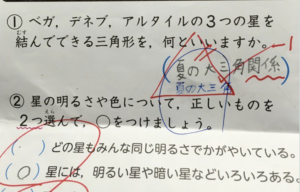 ① ベガ，デネブ，アルタイルの3つの星を
結んでできる三角形を，何といいますか。
(夏の大三角関係)
夏の大三角
② 星の明るさや色について，正しいものを
2つ選んで，○をつけましょう。
( ) どの星もみんな同じ明るさでかがやいている。
(○) 星には，明るい星や暗い星などいろいろある。